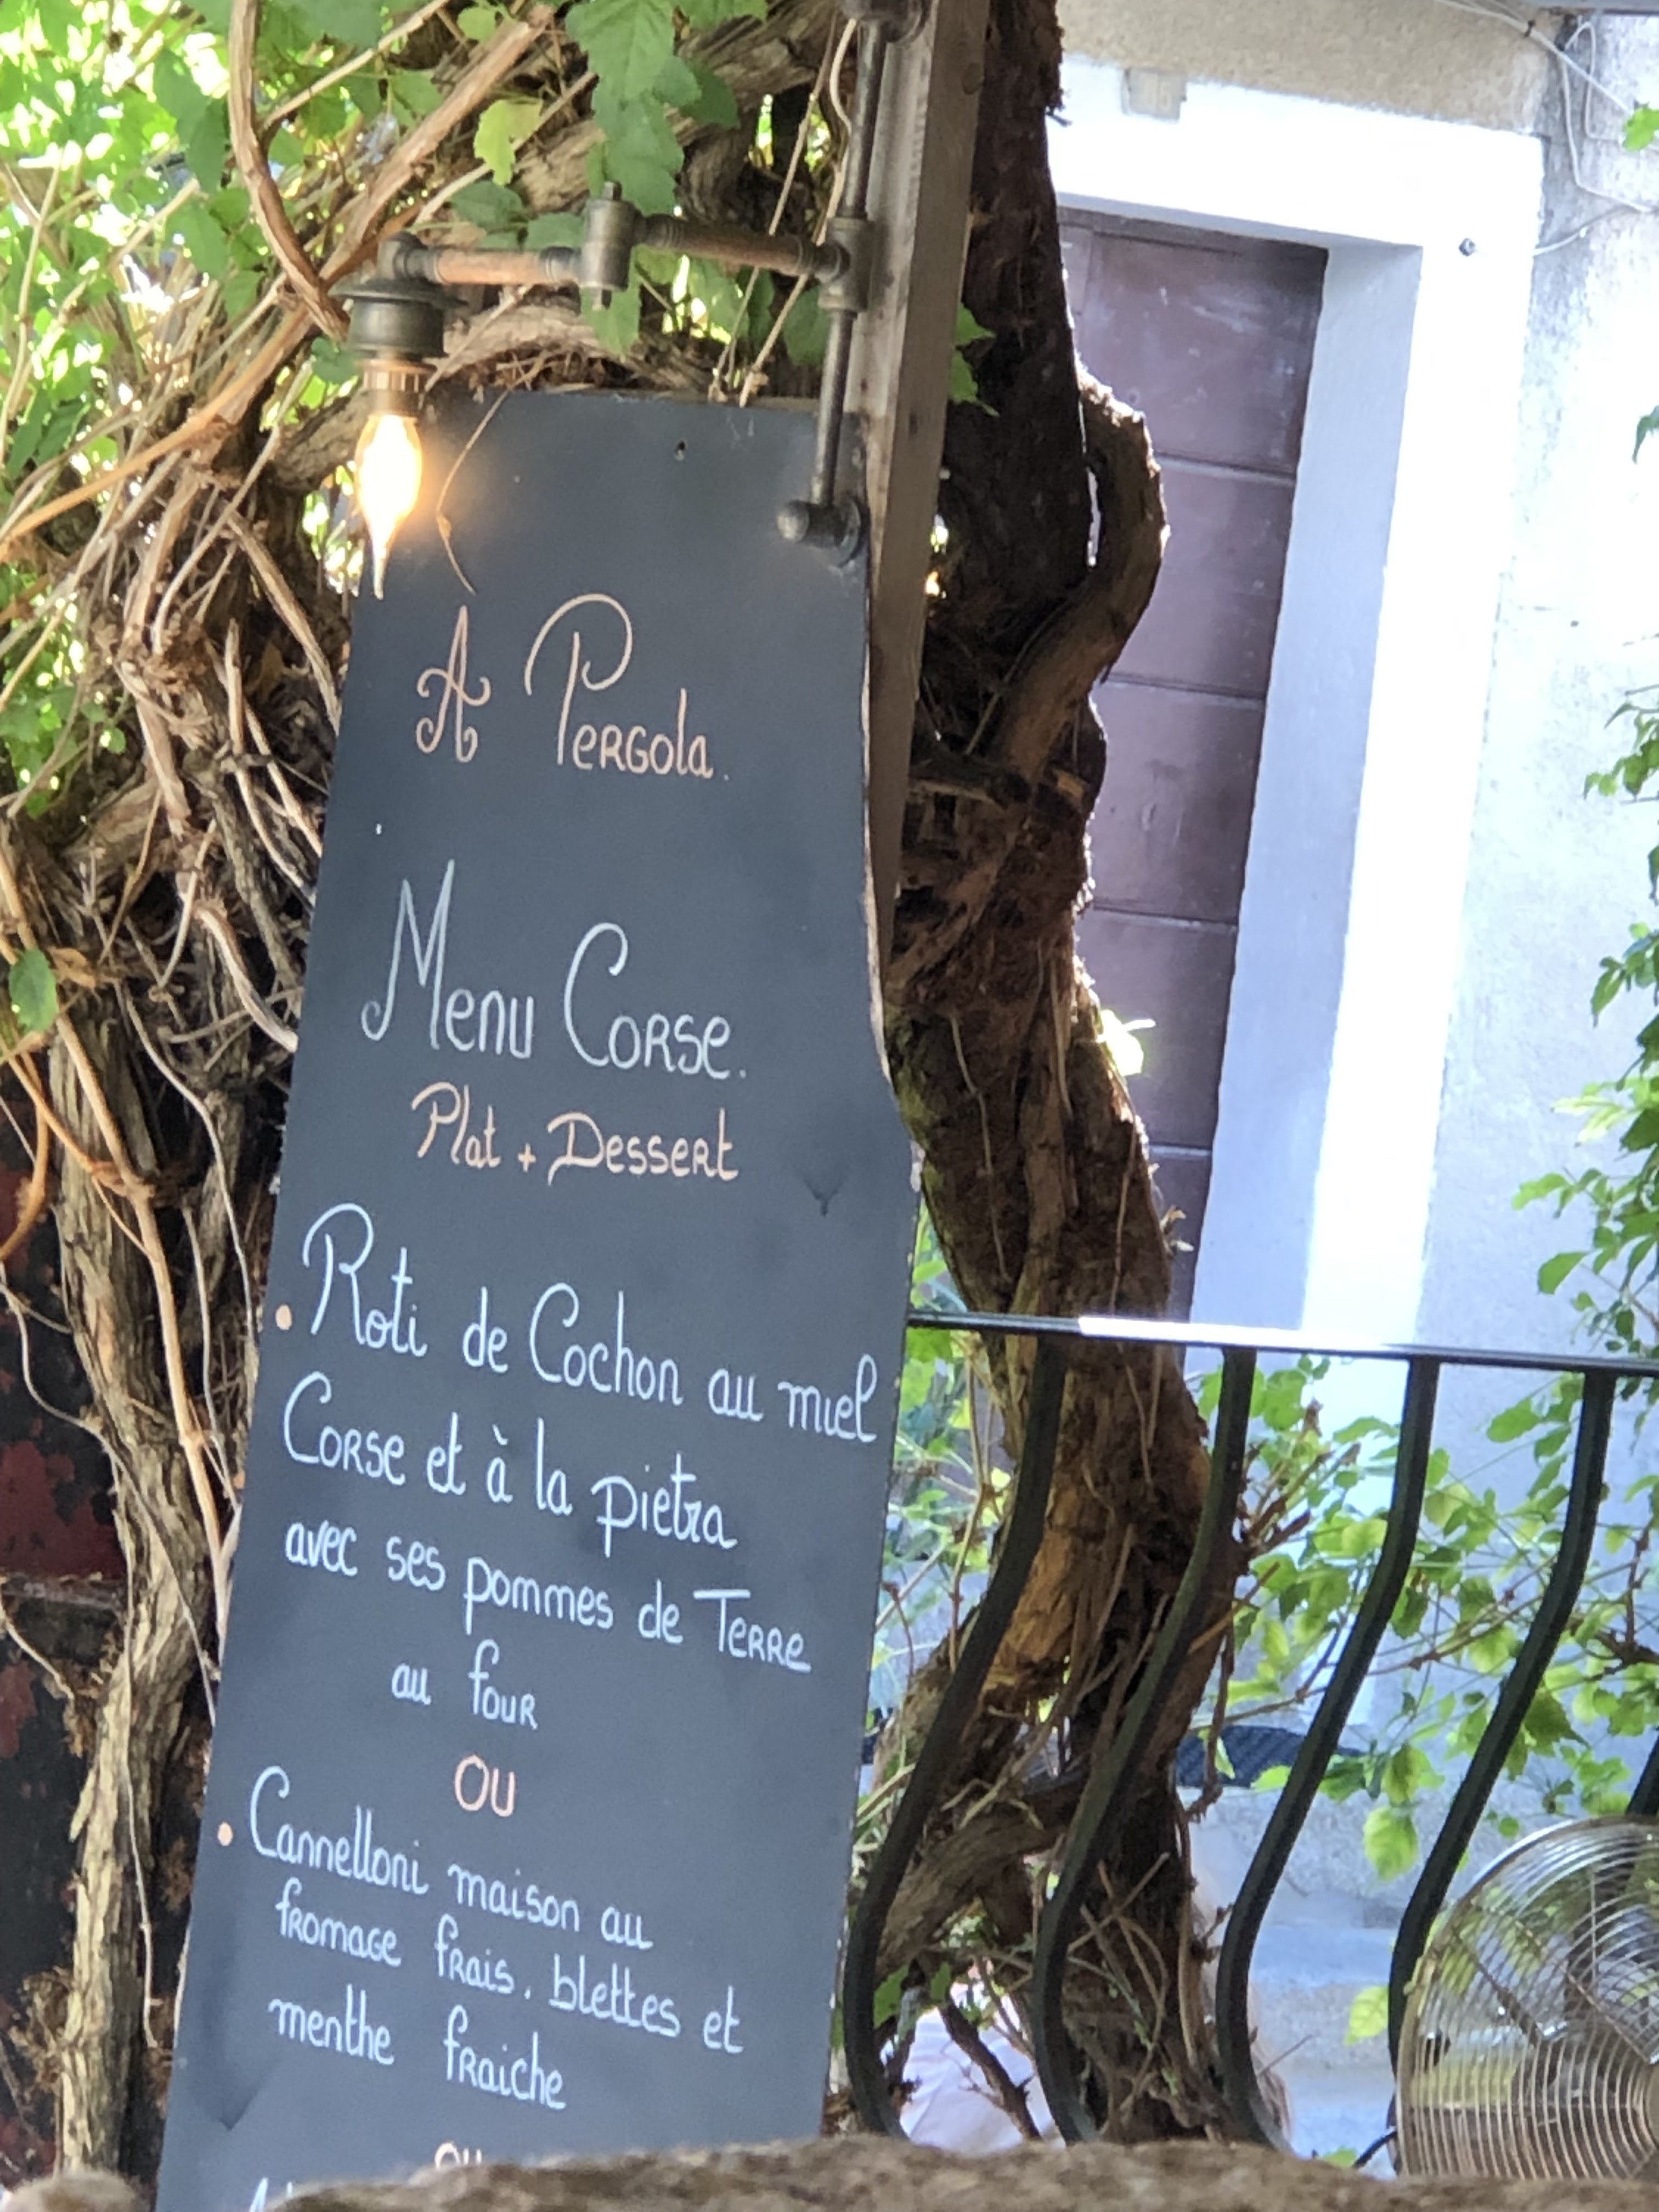 A Pergola.
Menu Corse.
Plat + Dessert
• Roti de Cochon au miel
Corse et à la pietra
avec ses pommes de Terre
au four
OU
• Cannelloni maison au
fromage frais, blettes et
menthe fraiche
OU